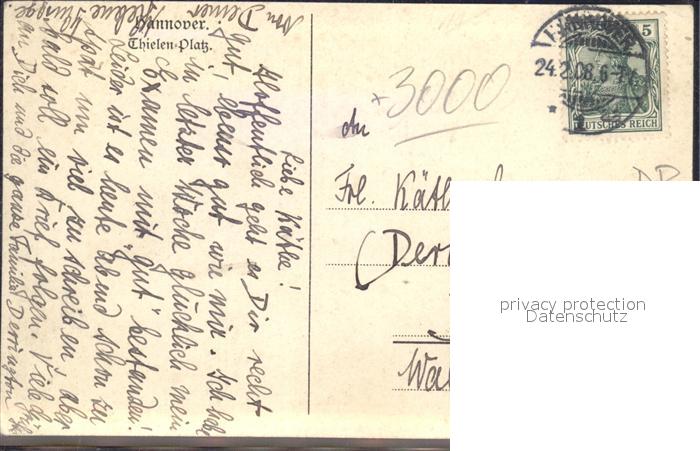 Hannover.
Thielen-Platz.
Liebe Käthe!
Hoffentlich geht es Dir recht
gut, ebenso gut wie mir. Ich habe
in letzter Woche glücklich mein
Examen mit "gut" bestanden!
Leider ist es heute abend schon zu
spät um viel zu schreiben, aber
bald soll ein Brief folgen. Viele
an Dich und die ganze Familie
Von Deiner
HANNOVER
24.2.08.6-7
5
DEUTSCHES REICH
3000
An
Frl. Käth
(Der
Wa
privacy protection
Datenschutz